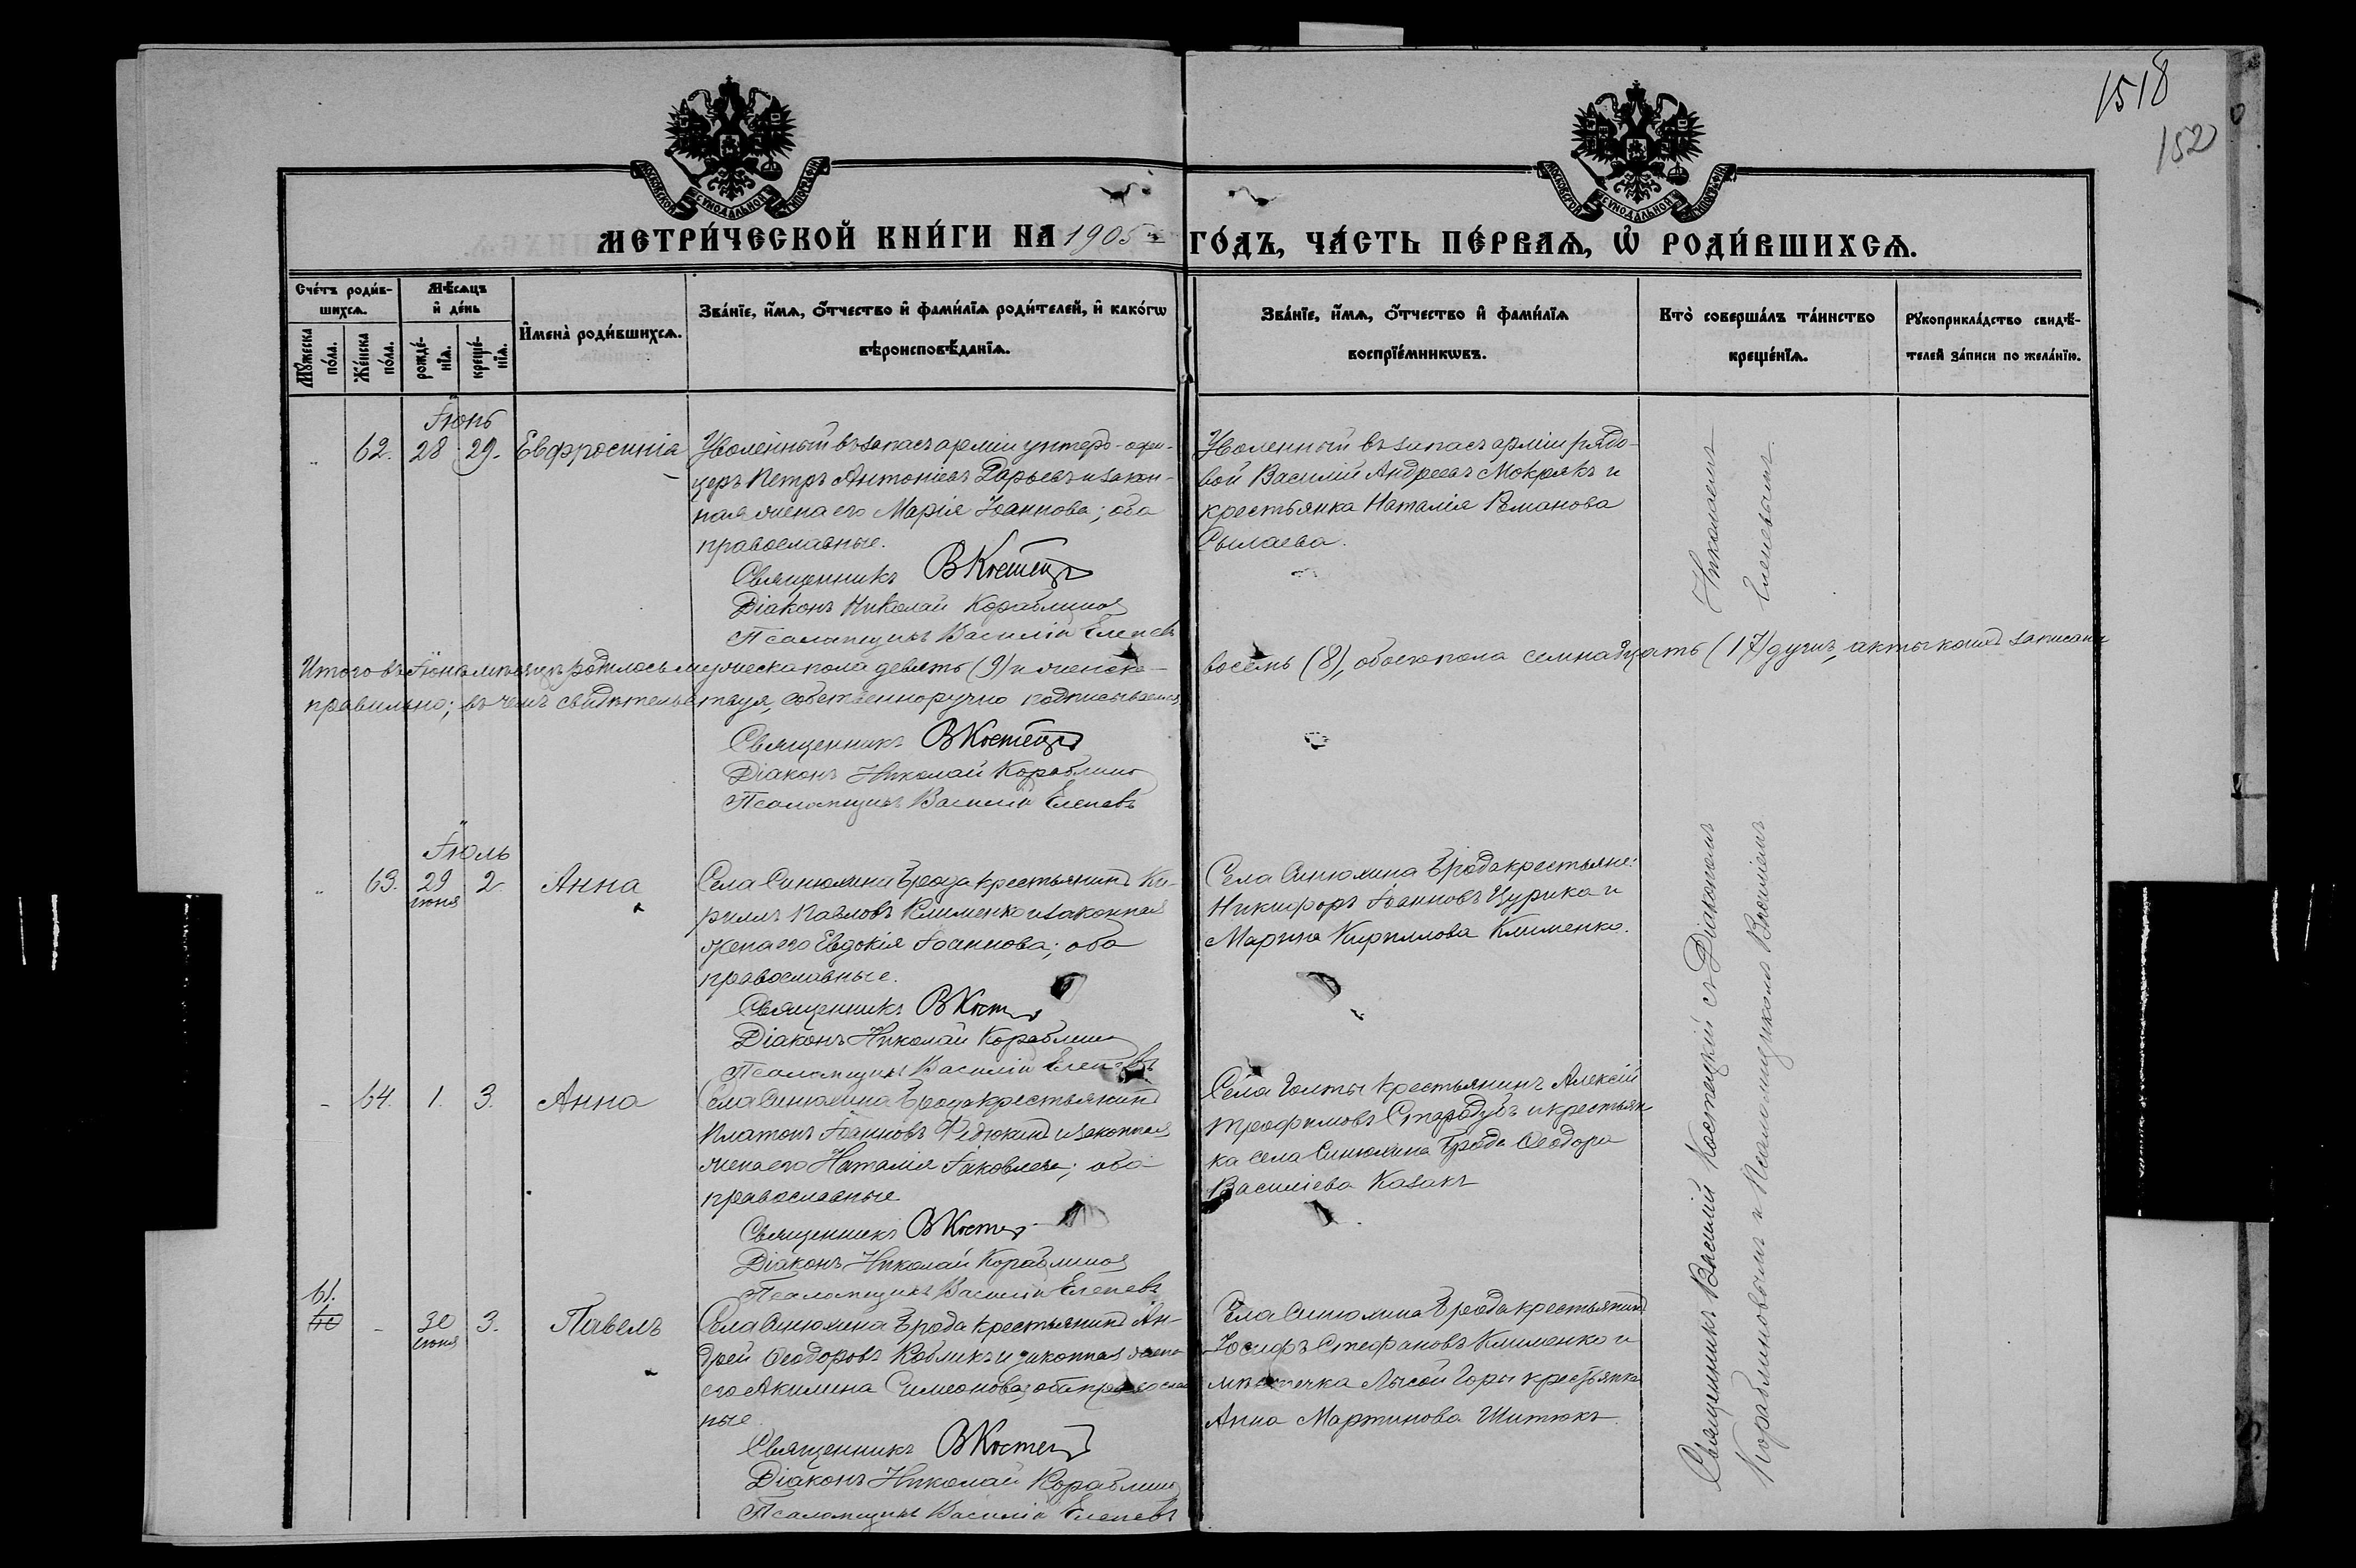 1518
152
МОСКОВСКОЙ СѴНОДАЛЬНОЙ ТИПОГРАФІИ
МОСКОВСКОЙ СѴНОДАЛЬНОЙ ТИПОГРАФІИ
МЕТРИ́ЧЕСКОЙ КНИ́ГИ НА 1905 ГО́ДЪ, ЧА́СТЬ ПЕ́РВАѦ, Ѡ҆ РОДИ́ВШИХСѦ.
Сче́тъ роди́в-
шихсѧ.
Мꙋ́жеска по́ла.
Же́нска по́ла.
Мѣ́сѧцъ
и҆ де́нь
рожде́-
нїѧ.
креще́-
нїѧ.
И҆мена̀ роди́вшихсѧ.
Зва́нїе, и҆́мѧ, ѻ҆́тчество и҆ фами́лїѧ роди́телей, и҆ како́гѡ
вѣроисповѣ́данїѧ.
Зва́нїе, и҆́мѧ, ѻ҆́тчество и҆ фами́лїѧ
воспрїе́мникѡвъ.
Кто̀ соверша́лъ та́инство
креще́нїѧ.
Рꙋкоприкла́дство свидѣ́-
телей за́писи по жела́нїю.
Іюнь
62. 28 29. Евфросинія
Уволенный въ запасъ арміи унтеръ-офи-
церъ Петръ Антоніевъ Дарьевъ и закон-
ная жена его Марія Іоаннова; оба
православные.
Священникъ В Костецкій
Діаконъ Николай Кораблиновъ
Псаломщикъ Василій Елепевъ
Уволенный въ запасъ арміи рядо-
вой Василій Андреевъ Мокрякъ и
крестьянка Наталія Романова
Сылаева.
Итого въ Іюнѣ мѣсяцѣ родилось мужеска пола девять (9) и женска- восемь (8), обоего пола семнадцать (17) душъ, акты коихъ записаны
правильно; въ чемъ свидѣтельствуя, собственноручно подписываемся
Священникъ В Костецкій
Діаконъ Николай Кораблинов
Псаломщикъ Василій Елепевъ
Іюль
63. 29 2. Анна
июня
Села Синюхина Брода крестьянинъ Ки-
риллъ Павловъ Клименко и законная
жена его Евдокія Іоаннова; оба
православные.
Священникъ В Кост
Діаконъ Николай Кораблинов
Псаломщикъ Василій Елепевъ
Села Синюхина Брода крестьяне:
Никифоръ Іоанновъ Цурика и
Марина Кириллова Клименко.
64. 1. 3. Анна
Села Синюхина Брода крестьянинъ
Платонъ Іоанновъ Федюкинъ и законная
жена его Наталія Іаковлева; оба
православные
Священникъ В Косте
Діаконъ Николай Кораблиновъ
Псаломщикъ Василій Елепевъ
Села Голты крестьянинъ Алексій
Трофимовъ Стародубъ и крестьян
ка села Синюхина Брода Ѳеодора
Василіева Казакъ
61.
60 30 3. Павелъ
июня
Села Синюхина Брода крестьянинъ Ан-
дрей Ѳеодоровъ Кобликъ и законная жена
его Акилина Симеонова; оба православ
ные.
Священникъ В Костец
Діаконъ Николай Кораблинов
Псаломщикъ Василій Елепевъ
Села Синюхина Брода крестьянинъ
Іосифъ Стефановъ Клименко и
мѣстечка Лысой Горы крестьянка
Анна Мартинова Шитюкъ.
Священникъ Василій Костецкій съ Діакономъ Николаемъ
Кораблиновымъ и Псаломщикомъ Василіемъ Елепевымъ